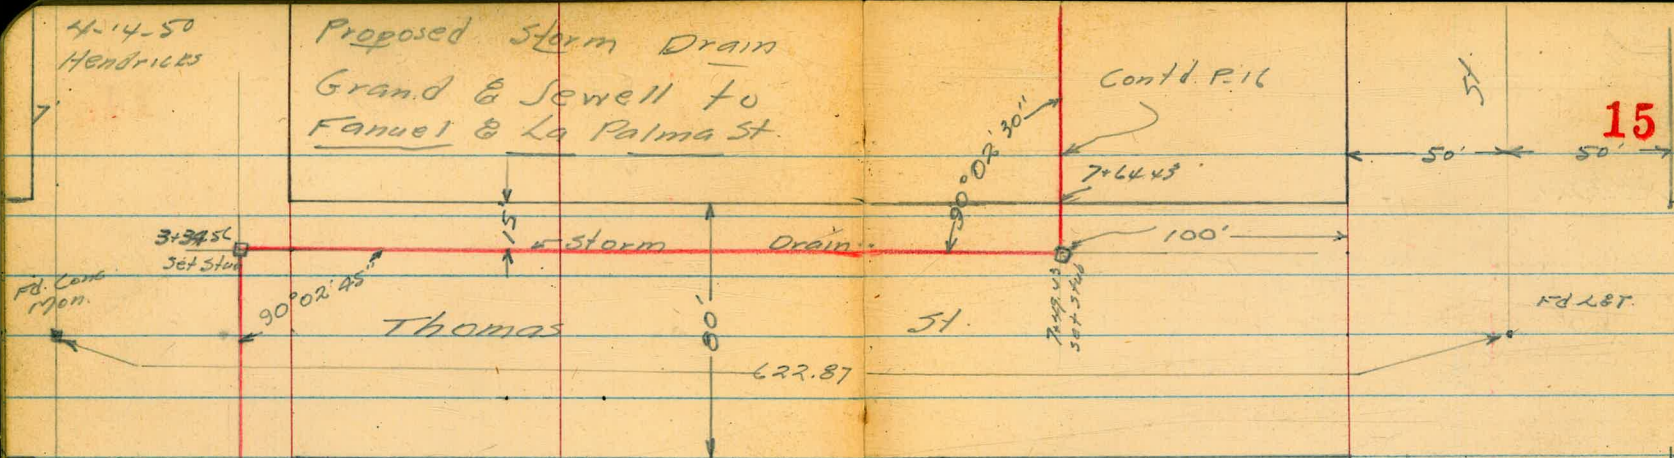 4-14-50
Hendricks
7'
Proposed Storm Drain
Grand & Sewell to
Fanuel & La Palma St.
Cont'd. P-16
St
15
50'
50'
90°02'30"
7+64.43
15'
3+34.56
Set Stub
Storm Drain
100'
Fd. Conc
Mon.
90°02'45"
Thomas St.
80'
7+49.43
Set Stub
Fd L&T.
622.87